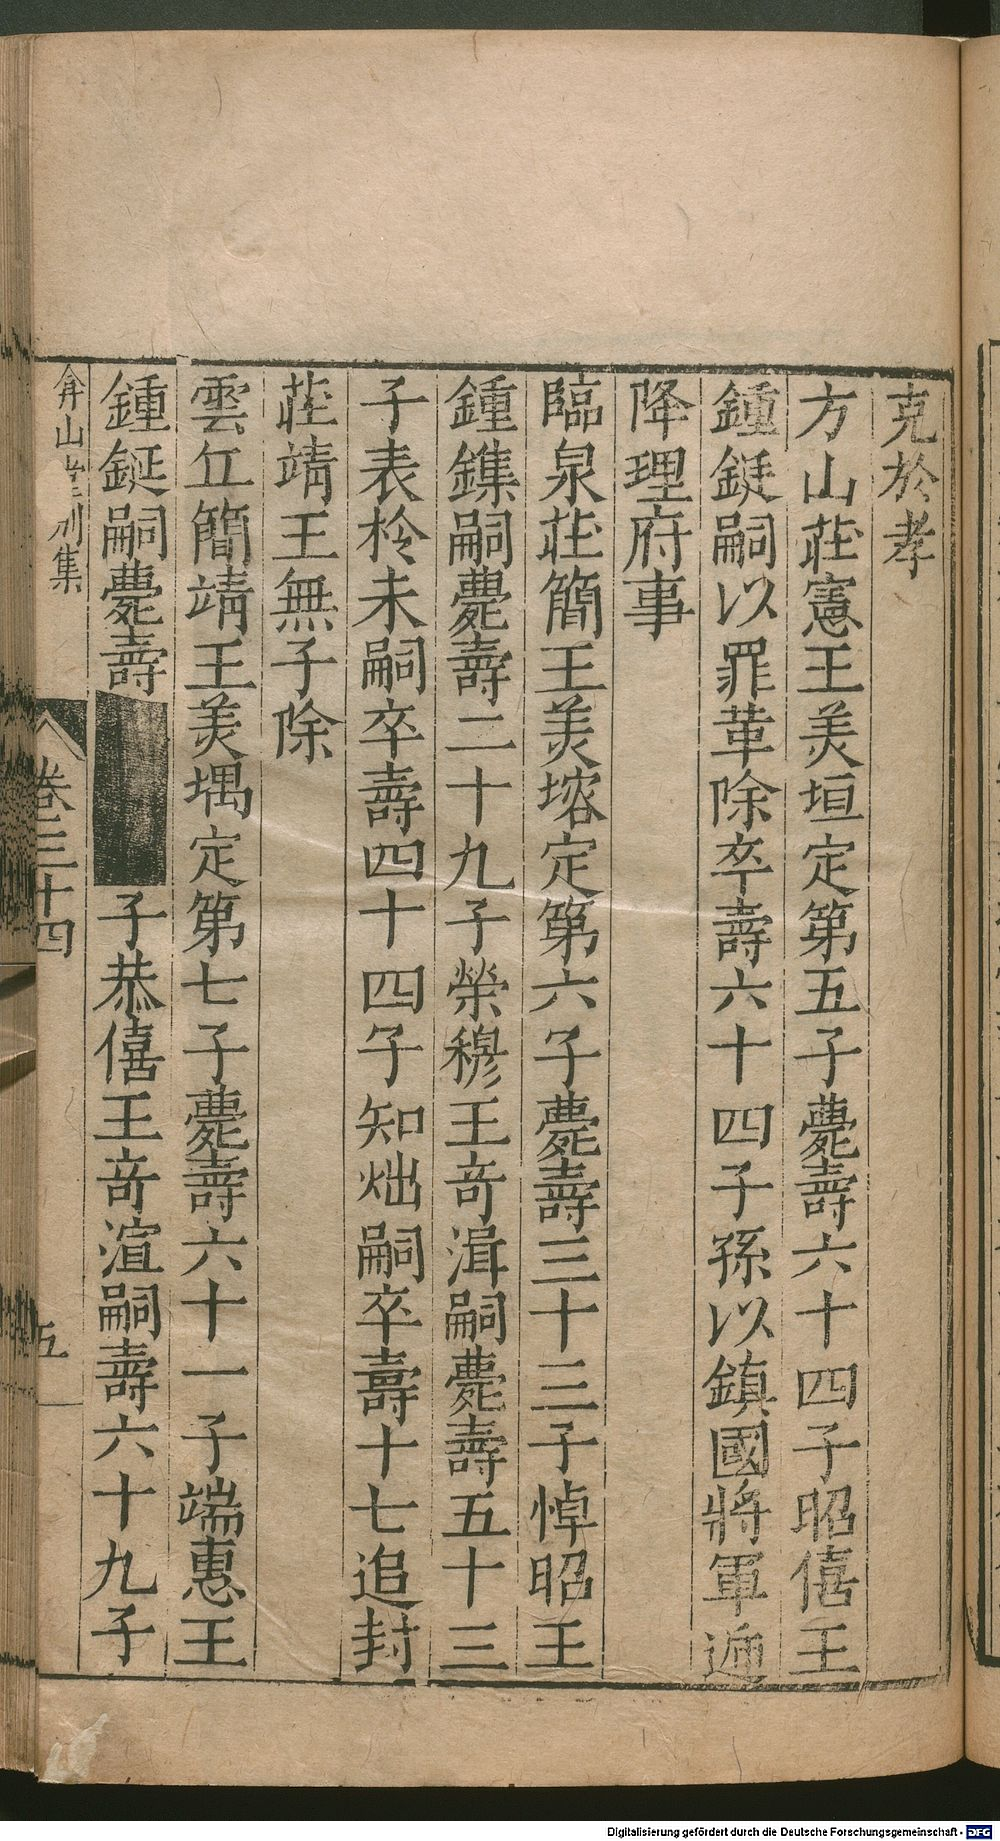 克於孝
方山莊憲王美垣定第五子薨壽六十四子昭僖王
鍾鋌嗣以罪革除卒壽六十四子孫以鎮國將軍逓
降理府事
臨泉莊簡王美塎定第六子薨壽三十三子悼昭王
鍾鏶嗣薨壽二十九子榮穆王奇湒嗣薨壽五十三
子表柃未嗣卒壽四十四子知㶆嗣卒壽十七追封
莊靖王無子除
雲丘簡靖王美堣定第七子薨壽六十一子端惠王
鍾鋋嗣薨壽子恭僖王奇渲嗣壽六十九子
弇山堂別集
卷三十四
五
Digitalisierung gefördert durch die Deutsche Forschungsgemeinschaft - DFG